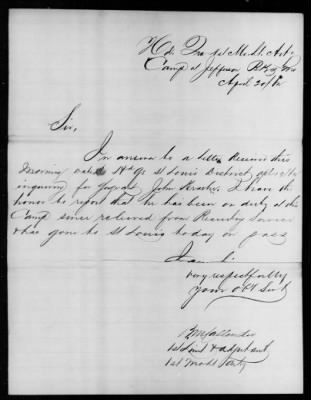 Hd. Qrs 1st Mo. Lt. Art.
Camp at Jefferson Bks Mo
April 20/6
Sir,
In answer to a letter Received this
Morning Hd Qrs St Louis District
inquiring for John I have the
honor to report that he has been on duty at this
Camp since relieved from Recruiting Service
& has gone to St Louis today on pass
I am Sir
very respectfully
your obt Svt
1st Lieut & adjutant
1st Mo Lt Arty